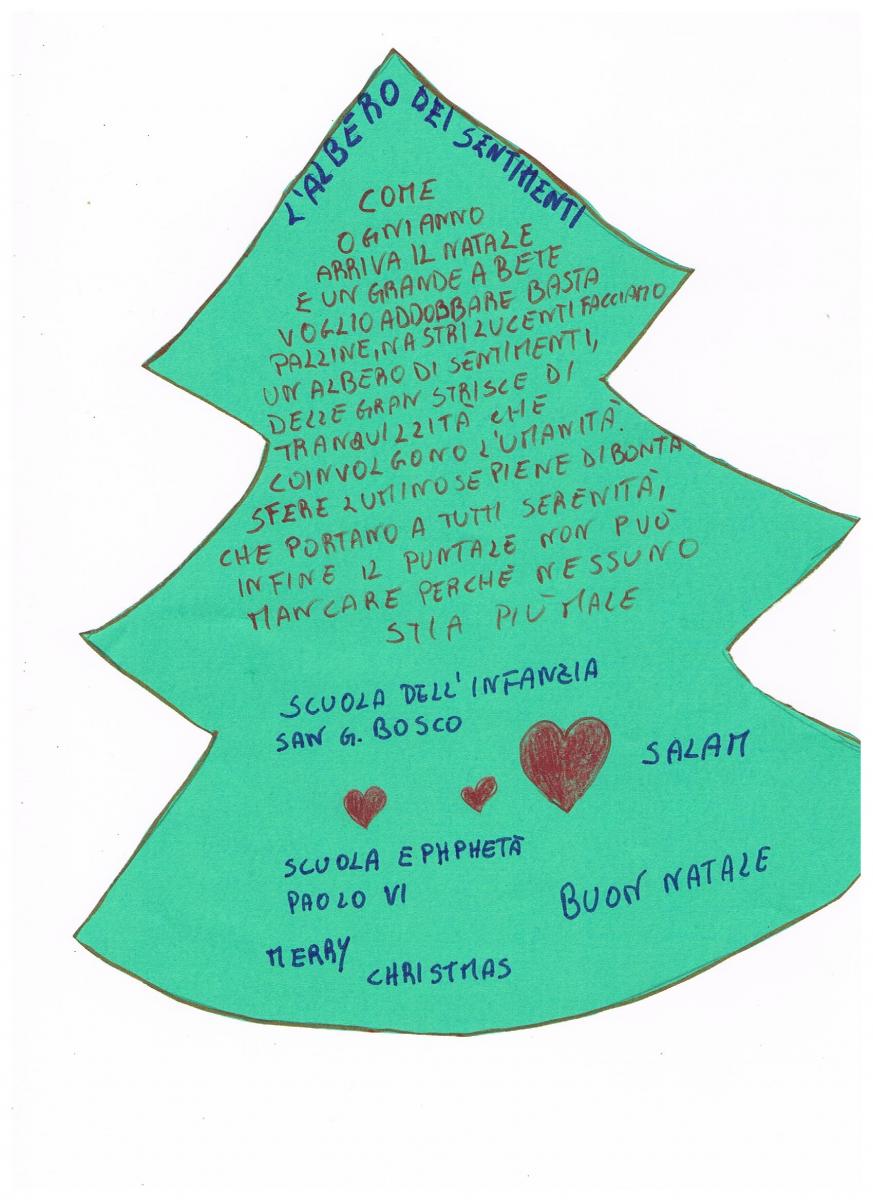 L'ALBERO DEI SENTIMENTI
COME
OGNI ANNO
ARRIVA IL NATALE
E UN GRANDE ABETE
VOGLIO ADDOBBARE BASTA
PALLINE, NASTRI LUCENTI FACCIAMO
UN ALBERO DI SENTIMENTI,
DELLE GRAN STRISCE DI
TRANQUILLITÀ CHE
COINVOLGONO L'UMANITÀ.
SFERE LUMINOSE PIENE DI BONTA
CHE PORTANO A TUTTI SERENITÀ,
INFINE IL PUNTALE NON PUÒ
MANCARE PERCHÈ NESSUNO
STIA PIÙ MALE
SCUOLA DELL'INFANZIA
SAN G. BOSCO
SALAM
SCUOLA EPHPHETÀ
PAOLO VI
BUON NATALE
MERRY
CHRISTMAS